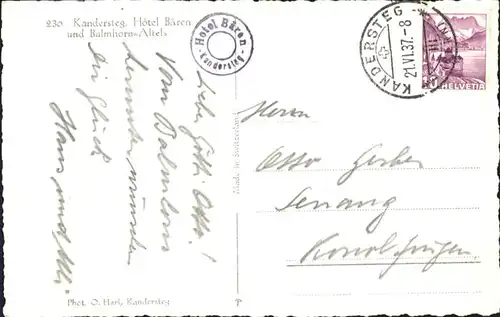 230. Kandersteg. Hôtel Bären
und Balmhorn-Altels
Hotel Bären
Kandersteg
KANDERSTEG
21.VI.37.-8
HELVETIA
Liebe Götti Otto!
Vom Balmhorn
herunter wünschen
wir Glück
Hans und
Made in Switzerland
Herrn
Otto Gerber
Konolfingen
Phot. O. Hari, Kandersteg